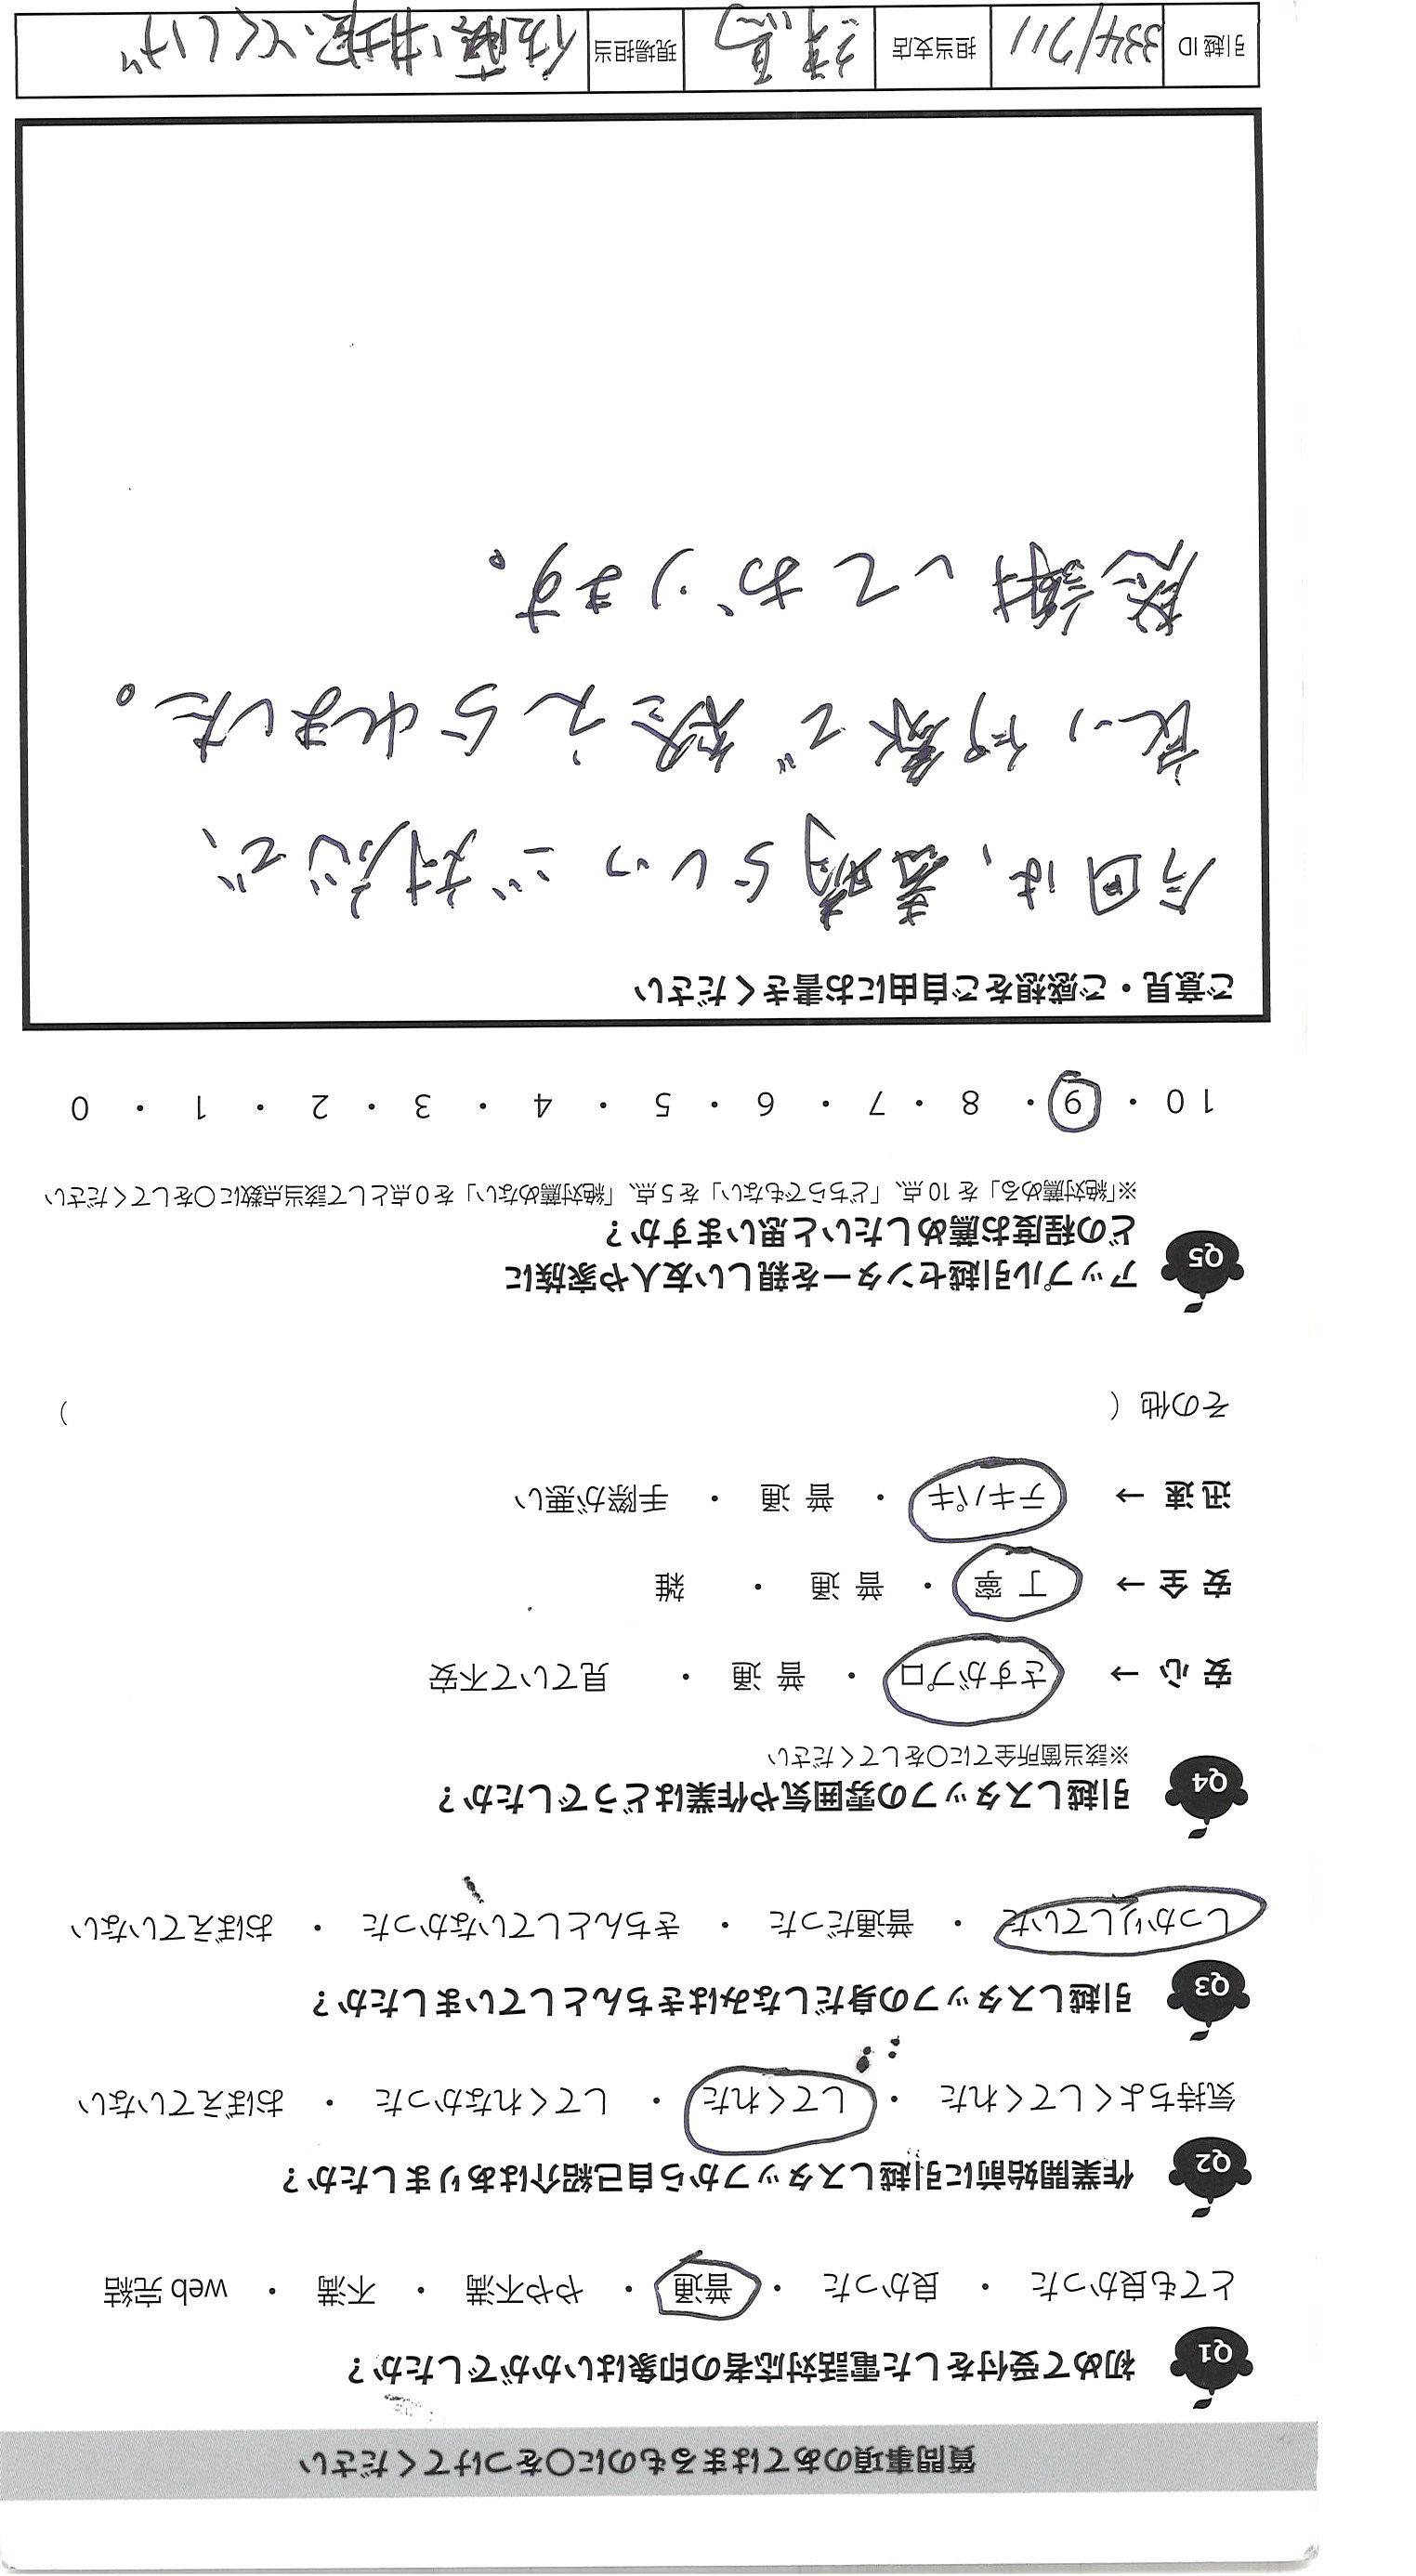 質問事項のあてはまるものに○をつけてください
Q1 初めて受付をした電話対応者の印象はいかがでしたか？
とても良かった ・ 良かった ・ 普通 ・ やや不満 ・ 不満 ・ web 完結
Q2 作業開始前に引越しスタッフから自己紹介はありましたか？
気持ちよくしてくれた ・ してくれた ・ してくれなかった ・ おぼえていない
Q3 引越しスタッフの身だしなみはきちんとしていましたか？
しっかりしていた ・ 普通だった ・ きちんとしていなかった ・ おぼえていない
Q4 引越しスタッフの雰囲気や作業はどうでしたか？
※該当箇所全てに○をしてください
安 心 → さすがプロ ・ 普 通 ・ 見ていて不安
安 全 → 丁 寧 ・ 普 通 ・ 雑
迅 速 → テキパキ ・ 普 通 ・ 手際が悪い
その他（ ）
Q5 アップル引越センターを親しい友人や家族に
どの程度お薦めしたいと思いますか？
※「絶対薦める」を 10 点、「どちらでもない」を 5 点、「絶対薦めない」を 0 点として該当点数に○をしてください
10 ・ 9 ・ 8 ・ 7 ・ 6 ・ 5 ・ 4 ・ 3 ・ 2 ・ 1 ・ 0
ご意見・ご感想をご自由にお書きください
今回は、素晴らしいご対応で、
良い印象で終えられました。
感謝しております。
引越 ID 3341711 担当支店 練馬 現場担当 佐藤、